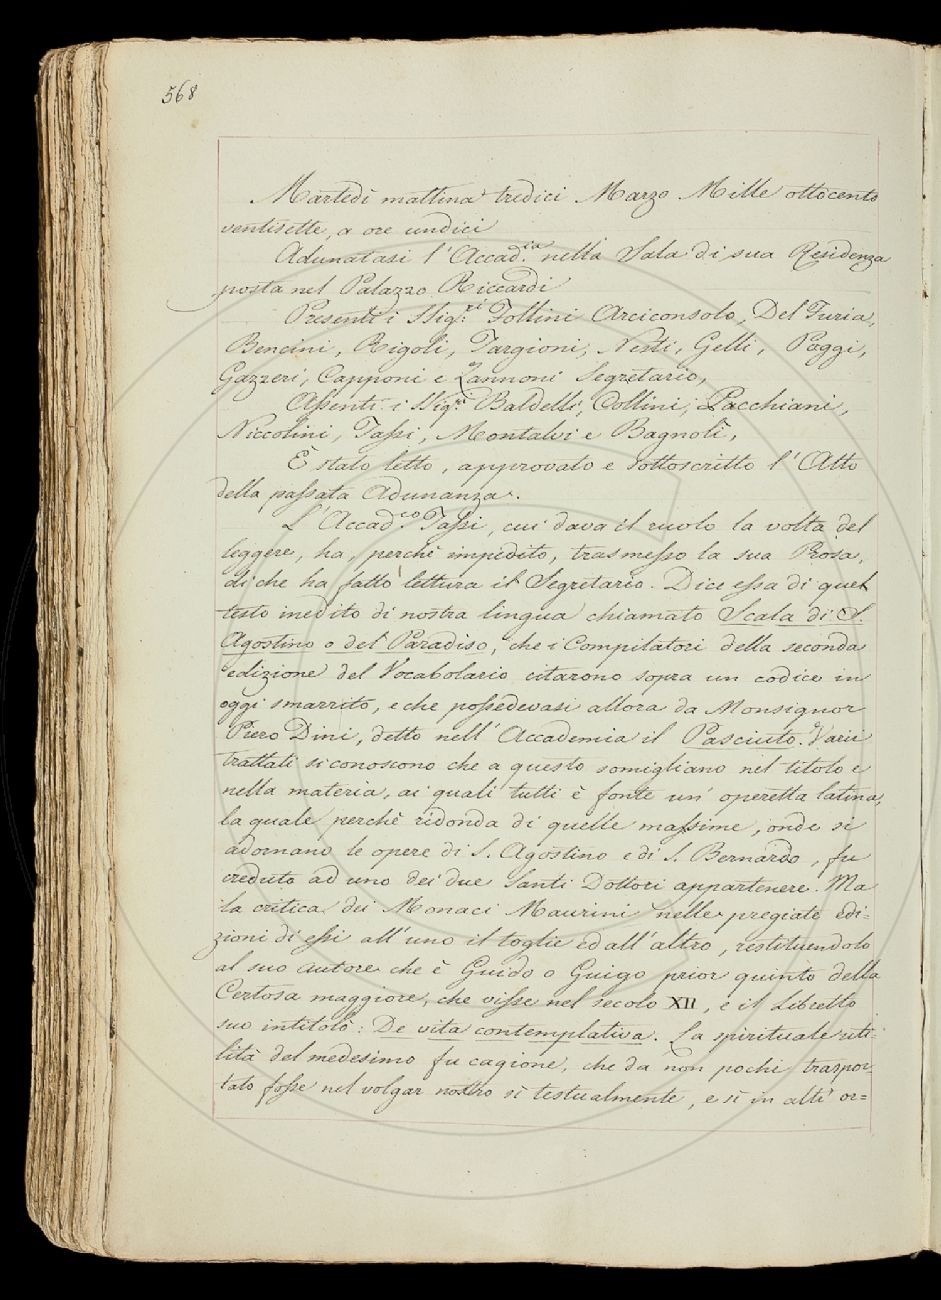 568
Martedì mattina tredici Marzo Mille ottocento
ventisette, a ore undici
Adunatasi l'Accad.ia nella Sala di sua Residenza
posta nel Palazzo Riccardi
Presenti i Sig.ri Follini Arciconsolo, Del Furia,
Bencini, Rigoli, Targioni, Nesti, Gelli, Poggi,
Gazzeri, Capponi e Zannoni Segretario,
Assenti i Sig.ri Baldelli, Collini, Pacchiani,
Niccolini, Tassi, Montalvi e Bagnoli,
È stato letto, approvato e sottoscritto l'Atto
della passata Adunanza.
L'Accad.co Tassi, cui dava il ruolo la volta del
leggere, ha, perchè impedito, trasmesso la sua Prosa,
di che ha fatto lettura il Segretario. Dice essa di quel
testo inedito di nostra lingua chiamato Scala di S.
Agostino o del Paradiso, che i Compilatori della seconda
edizione del Vocabolario citarono sopra un codice in
oggi smarrito, e che possedevasi allora da Monsignor
Piero Dini, detto nell'Accademia il Pasciuto. Varii
trattati si conoscono che a questo somigliano nel titolo e
nella materia, ai quali tutti è fonte un'operetta latina,
la quale perchè ridonda di quelle massime, onde si
adornano le opere di S. Agostino e di S. Bernardo, fu
creduto ad uno dei due Santi Dottori appartenere. Ma
la critica dei Monaci Maurini nelle pregiate edi=
zioni di essi all'uno il toglie ed all'altro, restituendolo
al suo autore che è Guido o Guigo prior quinto della
Certosa maggiore, che visse nel secolo XII, e il Libretto
suo intitolò: De vita contemplativa. La spirituale uti=
lità del medesimo fu cagione, che da non pochi traspor=
tato fosse nel volgar nostro sì testualmente, e sì in altr'or=